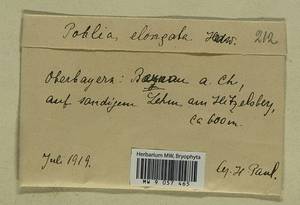 Pohlia elongata Hedw. 212
Oberbayern: Bernau a. Ch.,
auf sandigem Lehm am Hitzelsberg,
ca 600m.
Juli 1919.
Herbarium MW, Bryophyta
MW 9 057 465
lg. H. Paul.